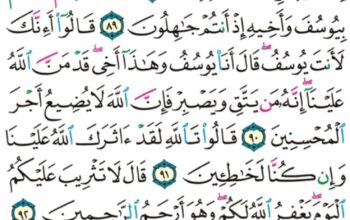 بِيُوسُفَ وَأَخِيهِ إِذْ أَنتُمْ جَـٰهِلُونَ ٨٩ قَالُوٓا۟ أَءِنَّكَ
لَأَنتَ يُوسُفُ ۖ قَالَ أَنَا۠ يُوسُفُ وَهَـٰذَآ أَخِى ۖ قَدْ مَنَّ ٱللَّهُ
عَلَيْنَآ ۖ إِنَّهُۥ مَن يَتَّقِ وَيَصْبِرْ فَإِنَّ ٱللَّهَ لَا يُضِيعُ أَجْرَ
ٱلْمُحْسِنِينَ ٩٠ قَالُوا۟ تَٱللَّهِ لَقَدْ ءَاثَرَكَ ٱللَّهُ عَلَيْنَا
وَإِن كُنَّا لَخَـٰطِـِٔينَ ٩١ قَالَ لَا تَثْرِيبَ عَلَيْكُمُ
ٱلْيَوْمَ ۖ يَغْفِرُ ٱللَّهُ لَكُمْ ۖ وَهُوَ أَرْحَمُ ٱلرَّٰحِمِينَ ٩٢